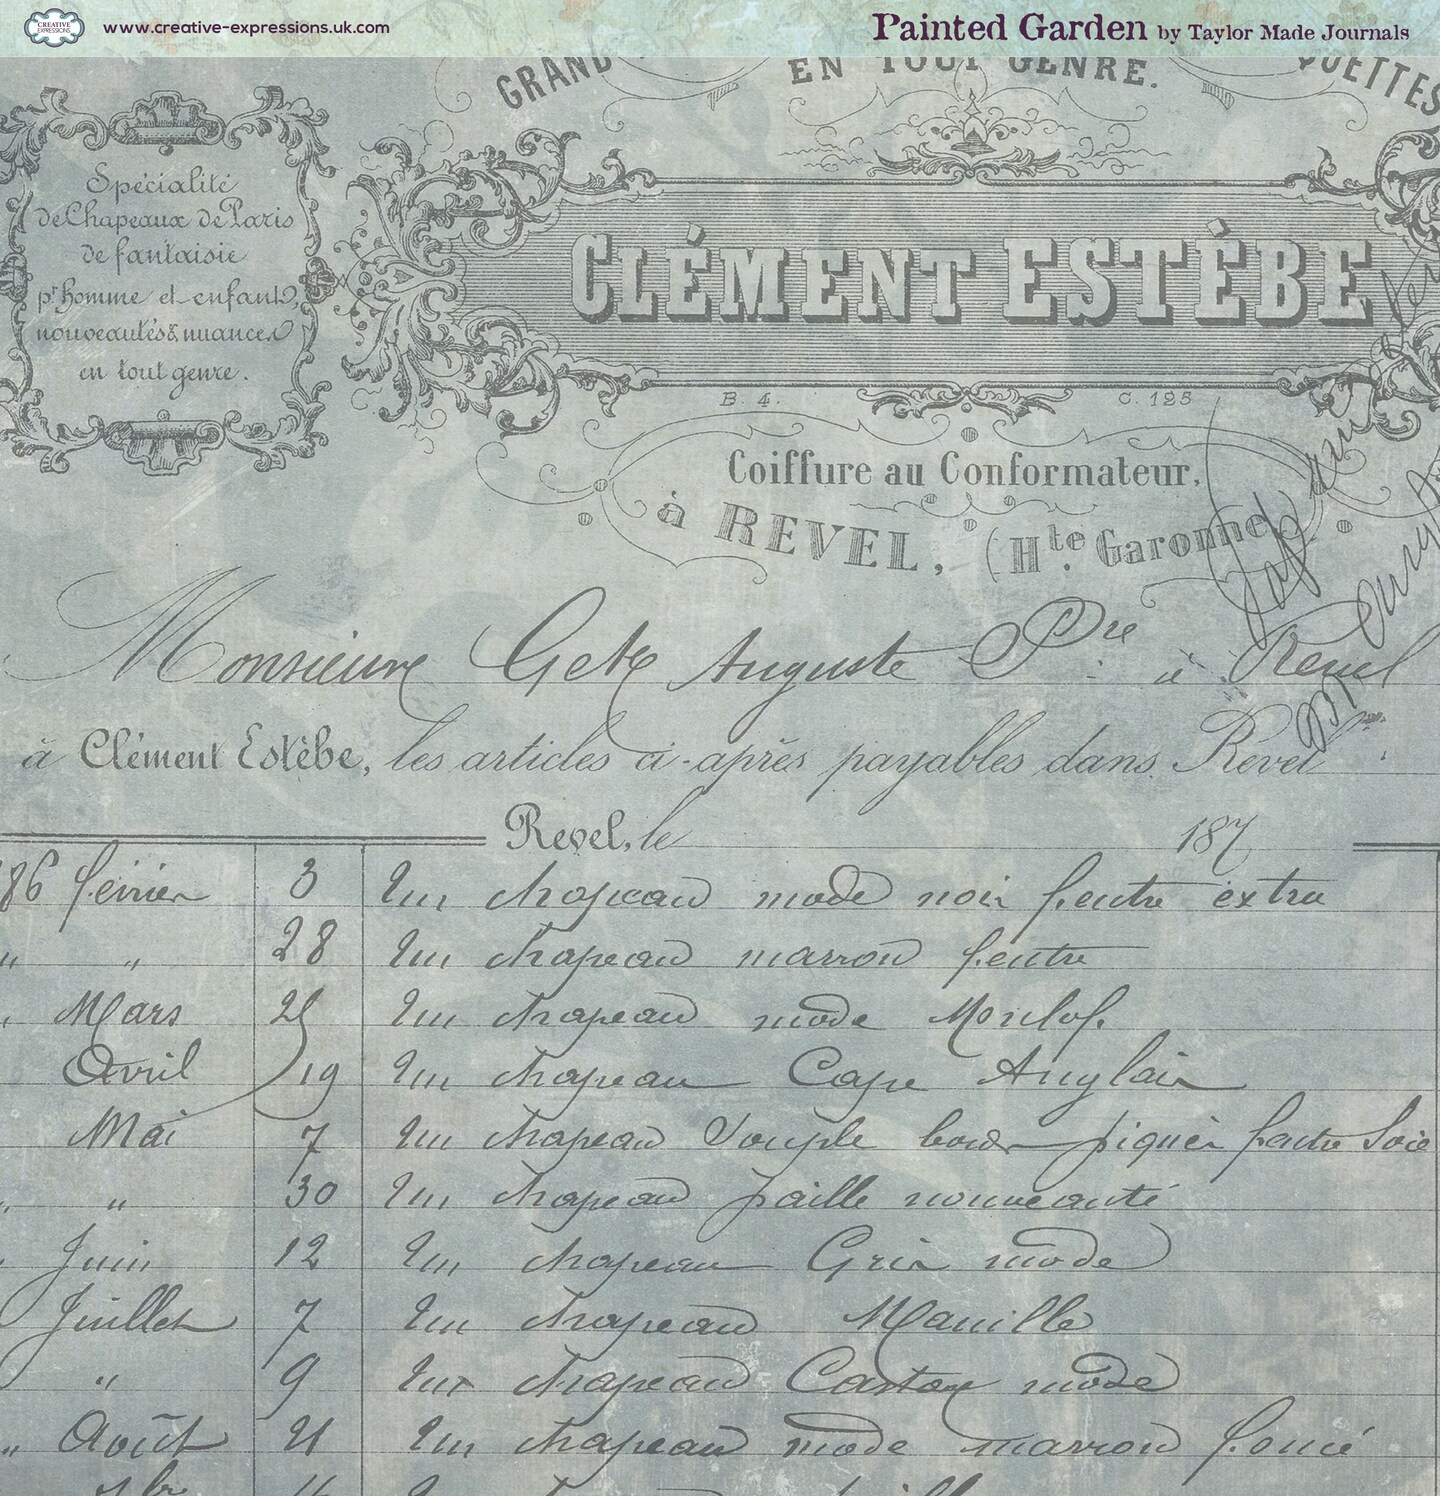 CREATIVE EXPRESSIONS
www.creative-expressions.uk.com
Painted Garden by Taylor Made Journals
GRAND
EN TOUT GENRE.
QUETTES
Spécialité
de Chapeaux de Paris
de fantaisie
pr homme et enfants,
nouveautés & nuances
en tout genre.
CLÉMENT ESTÈBE
B. 4.
C. 125
Coiffure au Conformateur,
à REVEL, (Hte. Garonne)
Monsieur Auguste Pre à Revel
à Clément Estèbe, les articles ci-après payables dans Revel
Revel, le 187
86 février 3 Un chapeau mode noir feutre extra
" " 28 Un chapeau marron feutre
Mars Un chapeau mode
Avril 19 Un chapeau Cape Anglais
Mai 7 Un chapeau Souple bord piquer feutre Soie
" " 30 Un chapeau paille nouveauté
Juin 12 Un chapeau Gris mode
Juillet 7 Un chapeau Manille
" 9 Un chapeau Castor mode
" Août 21 Un chapeau mode marron foncé